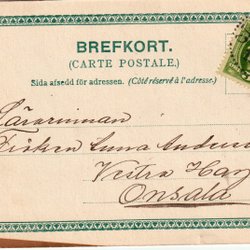 BREFKORT.
(CARTE POSTALE.)
Sida afsedd för adressen. (Côté réservé à l'adresse.)
Lärarinnan
Fröken Anna Anders
Vestra Hag
Onsala